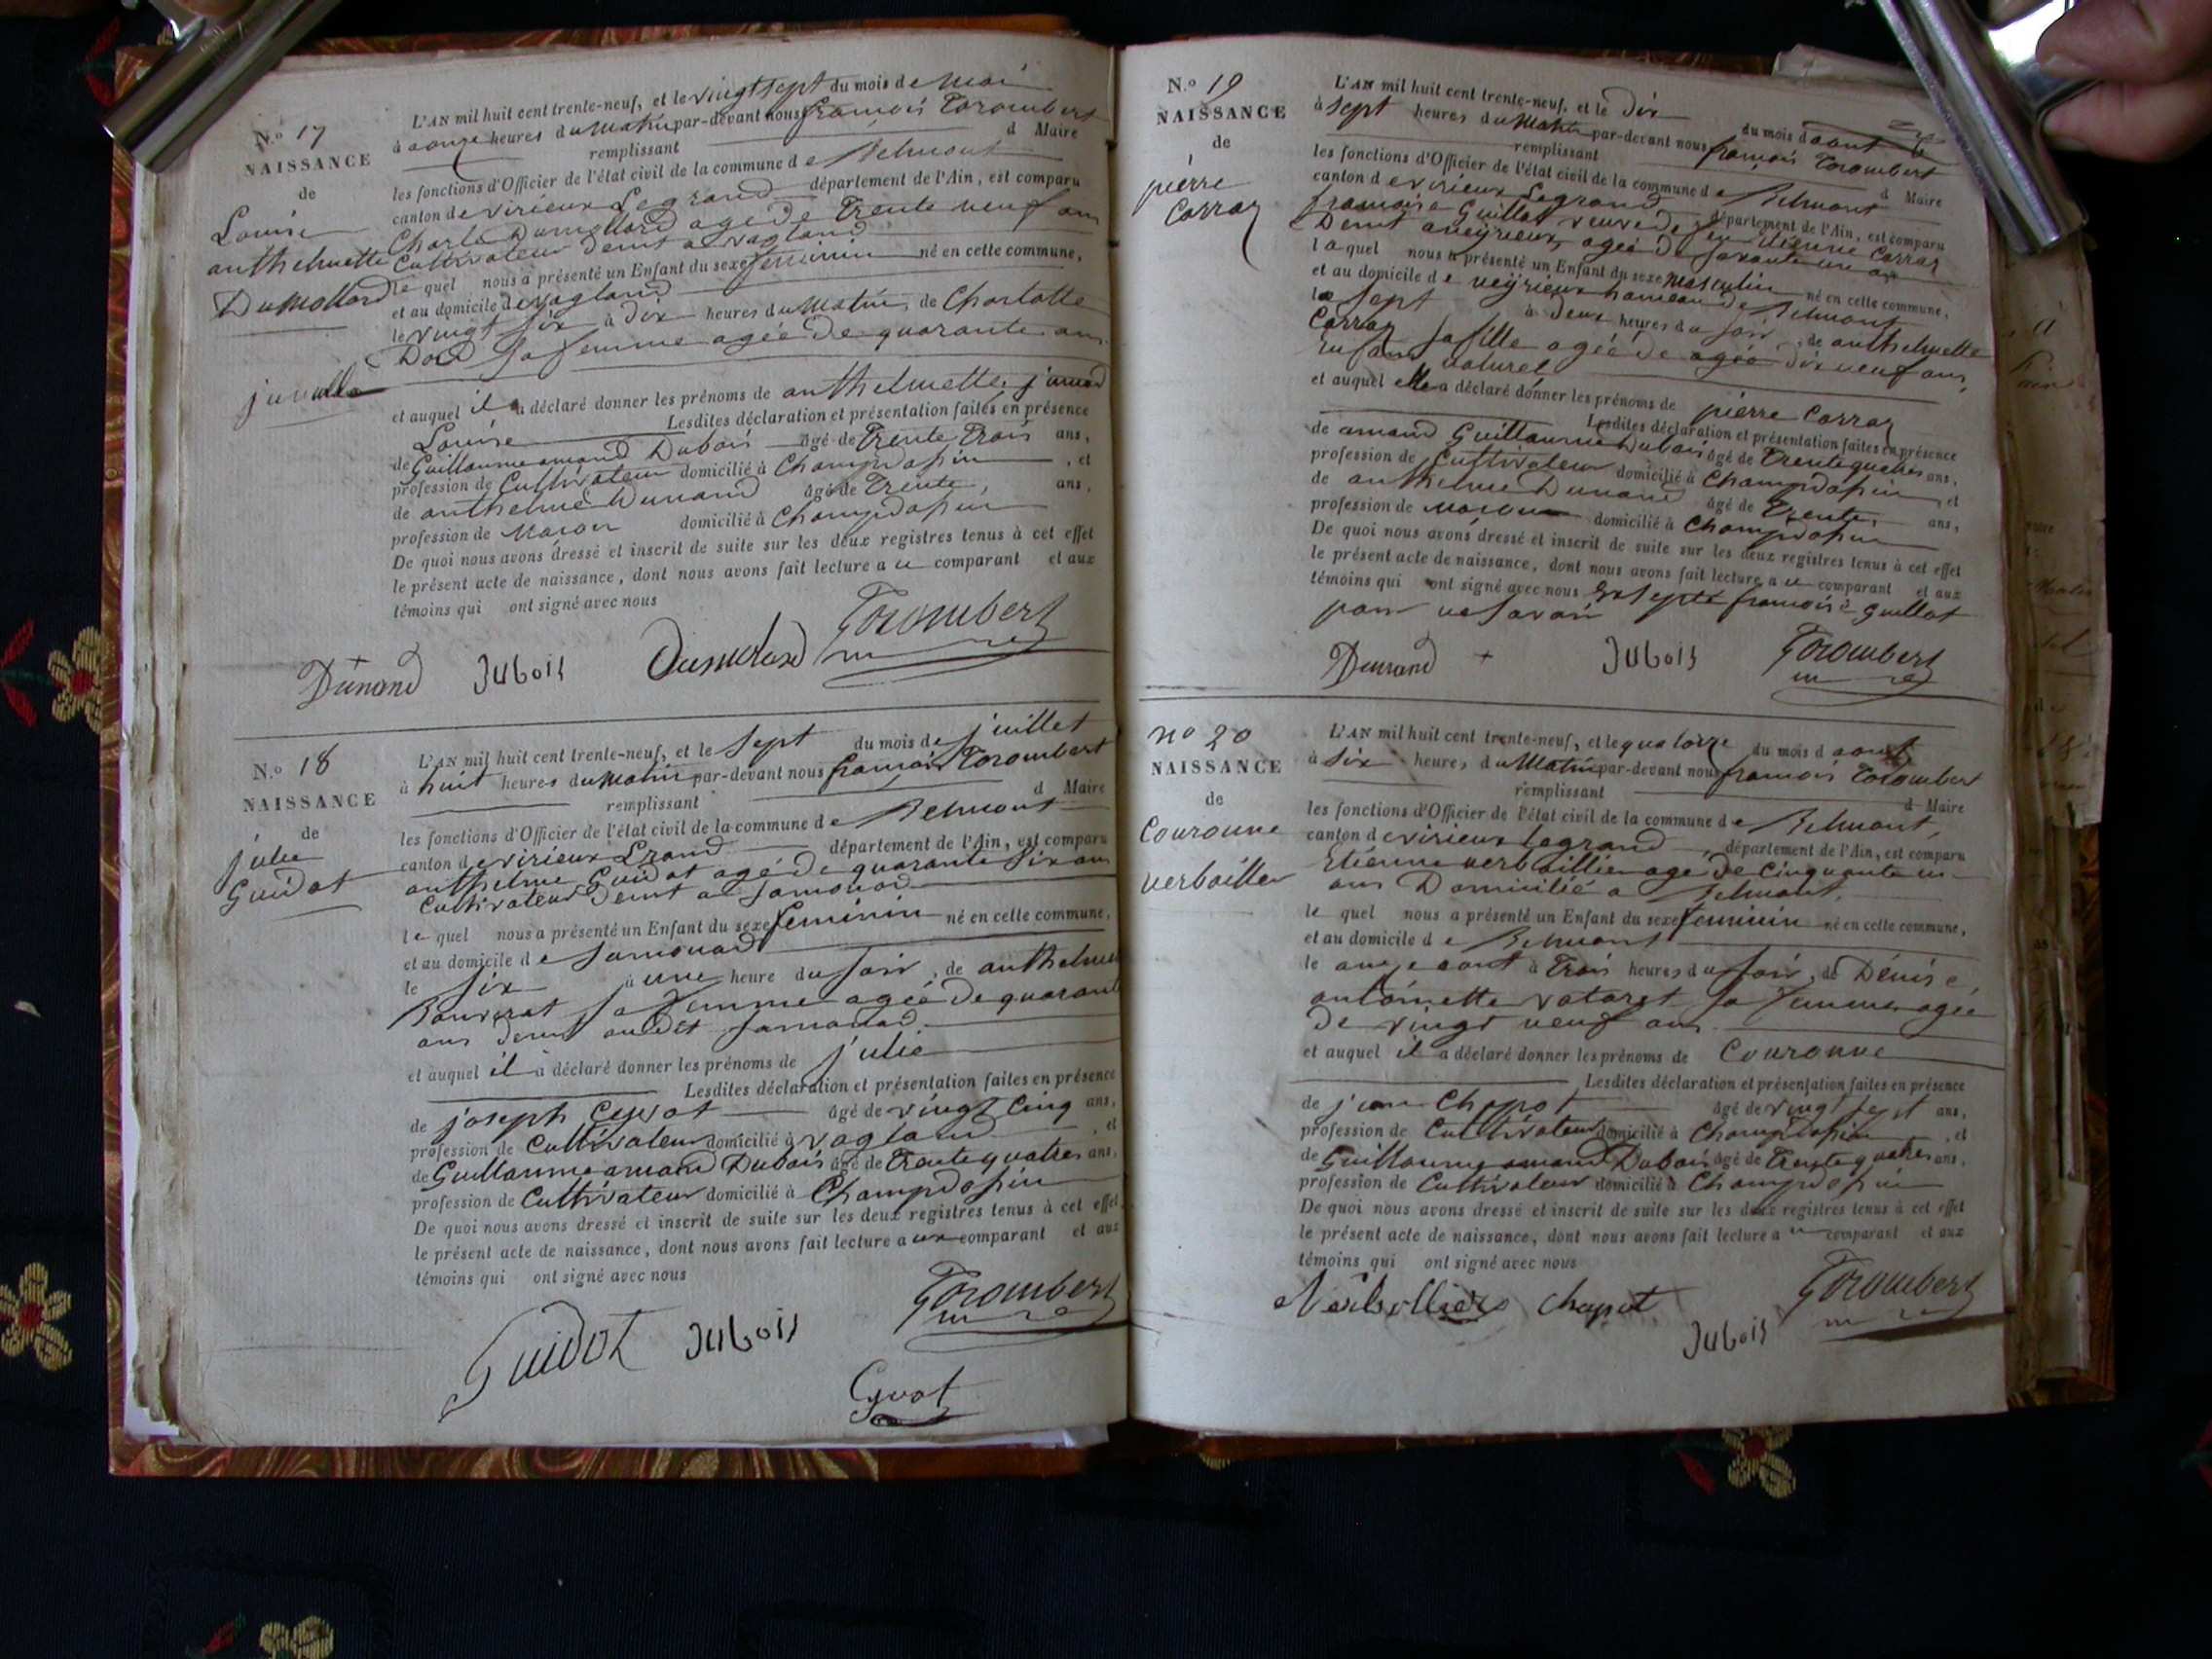 N.º 17
NAISSANCE
de
Louise
anthelmette
Dumollard
jumelle
L'AN mil huit cent trente-neuf, et le vingt sept du mois de Mai
à onze heures du Matin par-devant nous françois Trombert
remplissant d Maire
les fonctions d'Officier de l'état civil de la commune de Belmont
canton de virieux Legrand département de l'Ain, est comparu
Charle Dumollard agé de Trente neuf ans
Cultivateur demt a vogland
le quel nous a présenté un Enfant du sexe feminin né en cette commune,
et au domicile de vogland
le vingt six à dix heures du Matin de Charlotte
sa femme agée de quarante ans
et auquel il a déclaré donner les prénoms de anthelmette
Louise Lesdites déclaration et présentation faites en présence
de Guillaume amand Dubois âgé de Trente Trois ans,
profession de Cultivateur domicilié à Champdosin , et
de anthelme Dunand âgé de Trente, ans,
profession de Maçon domicilié à Champdosin
De quoi nous avons dressé et inscrit de suite sur les deux registres tenus à cet effet
le présent acte de naissance, dont nous avons fait lecture a u comparant et aux
témoins qui ont signé avec nous
Dunand Dubois Dumolard Trombert
N.º 18
NAISSANCE
de
julie
Guidot
L'AN mil huit cent trente-neuf, et le Sept du mois de juillet
à huit heures du Matin par-devant nous françois Trombert
remplissant d Maire
les fonctions d'Officier de l'état civil de la commune de Belmont
canton de virieux Grand département de l'Ain, est comparu
anthelme Guidot agé de quarante six ans
Cultivateur demt a Samonod
le quel nous a présenté un Enfant du sexe feminin né en cette commune,
et au domicile de Samonard
le Six à une heure du soir, de anthelme
sa femme agée de quarante
ans demt audit Samonod
et auquel il a déclaré donner les prénoms de julie
Lesdites déclaration et présentation faites en présence
de joseph Cyvot âgé de vingt Cinq ans,
profession de Cultivateur domicilié à vogland , et
de Guillaume amand Dubois âgé de Trente quatres ans,
profession de Cultivateur domicilié à Champdosin
De quoi nous avons dressé et inscrit de suite sur les deux registres tenus à cet effet
le présent acte de naissance, dont nous avons fait lecture a ux comparant et aux
témoins qui ont signé avec nous
Guidot Dubois Trombert
Cyvot
N.º 19
NAISSANCE
de
pierre
Carraz
L'AN mil huit cent trente-neuf, et le Dix du mois d aout
à Sept heures du Matin par-devant nous françois Trombert
remplissant d Maire
les fonctions d'Officier de l'état civil de la commune de Belmont
canton de virieux Legrand département de l'Ain, est comparu
françoise Guillot veuve de feu Etienne Carraz
Demt a veyrieux, agée de soixante un ans
laquel nous a présenté un Enfant du sexe Masculin né en cette commune,
et au domicile de veyrieux hameau de Belmont
le Sept à deux heures du soir, de anthelmette
Carraz sa fille agée de agée dix neuf ans,
Enfant naturel
et auquel elle a déclaré donner les prénoms de pierre Carraz
Lesdites déclaration et présentation faites en présence
de amand Guillaume Dubois âgé de Trente quatres ans,
profession de Cultivateur domicilié à Champdosin , et
de anthelme Dunand âgé de Trente ans,
profession de Maçon domicilié à Champdosin
De quoi nous avons dressé et inscrit de suite sur les deux registres tenus à cet effet
le présent acte de naissance, dont nous avons fait lecture a u comparant et aux
témoins qui ont signé avec nous Exsepté françoise Guillot
pour ne savoir
Dunand + Dubois Trombert
nº 20
NAISSANCE
de
Couronne
verbaillier
L'AN mil huit cent trente-neuf, et le quatorze du mois d aout
à six heures du Matin par-devant nous françois Trombert
remplissant d Maire
les fonctions d'Officier de l'état civil de la commune de Belmont,
canton de virieux Legrand, département de l'Ain, est comparu
Etienne verbaillier age de Cinquante un
ans Domicilié a Belmont,
le quel nous a présenté un Enfant du sexe feminin né en cette commune,
et au domicile de Belmont
le onze aout à Trois heures du soir, de Dénise
antoinette sa femme agée
de vingt neuf ans
et auquel il a déclaré donner les prénoms de Couronne
Lesdites déclaration et présentation faites en présence
de jean Chapot âgé de vingt sept ans,
profession de Cultivateur domicilié à Champdosin , et
de Guillaume amand Dubois âgé de Trente quatres ans,
profession de Cultivateur domicilié à Champdosin
De quoi nous avons dressé et inscrit de suite sur les deux registres tenus à cet effet
le présent acte de naissance, dont nous avons fait lecture a u comparant et aux
témoins qui ont signé avec nous
Verbollier Chapot Trombert
Dubois